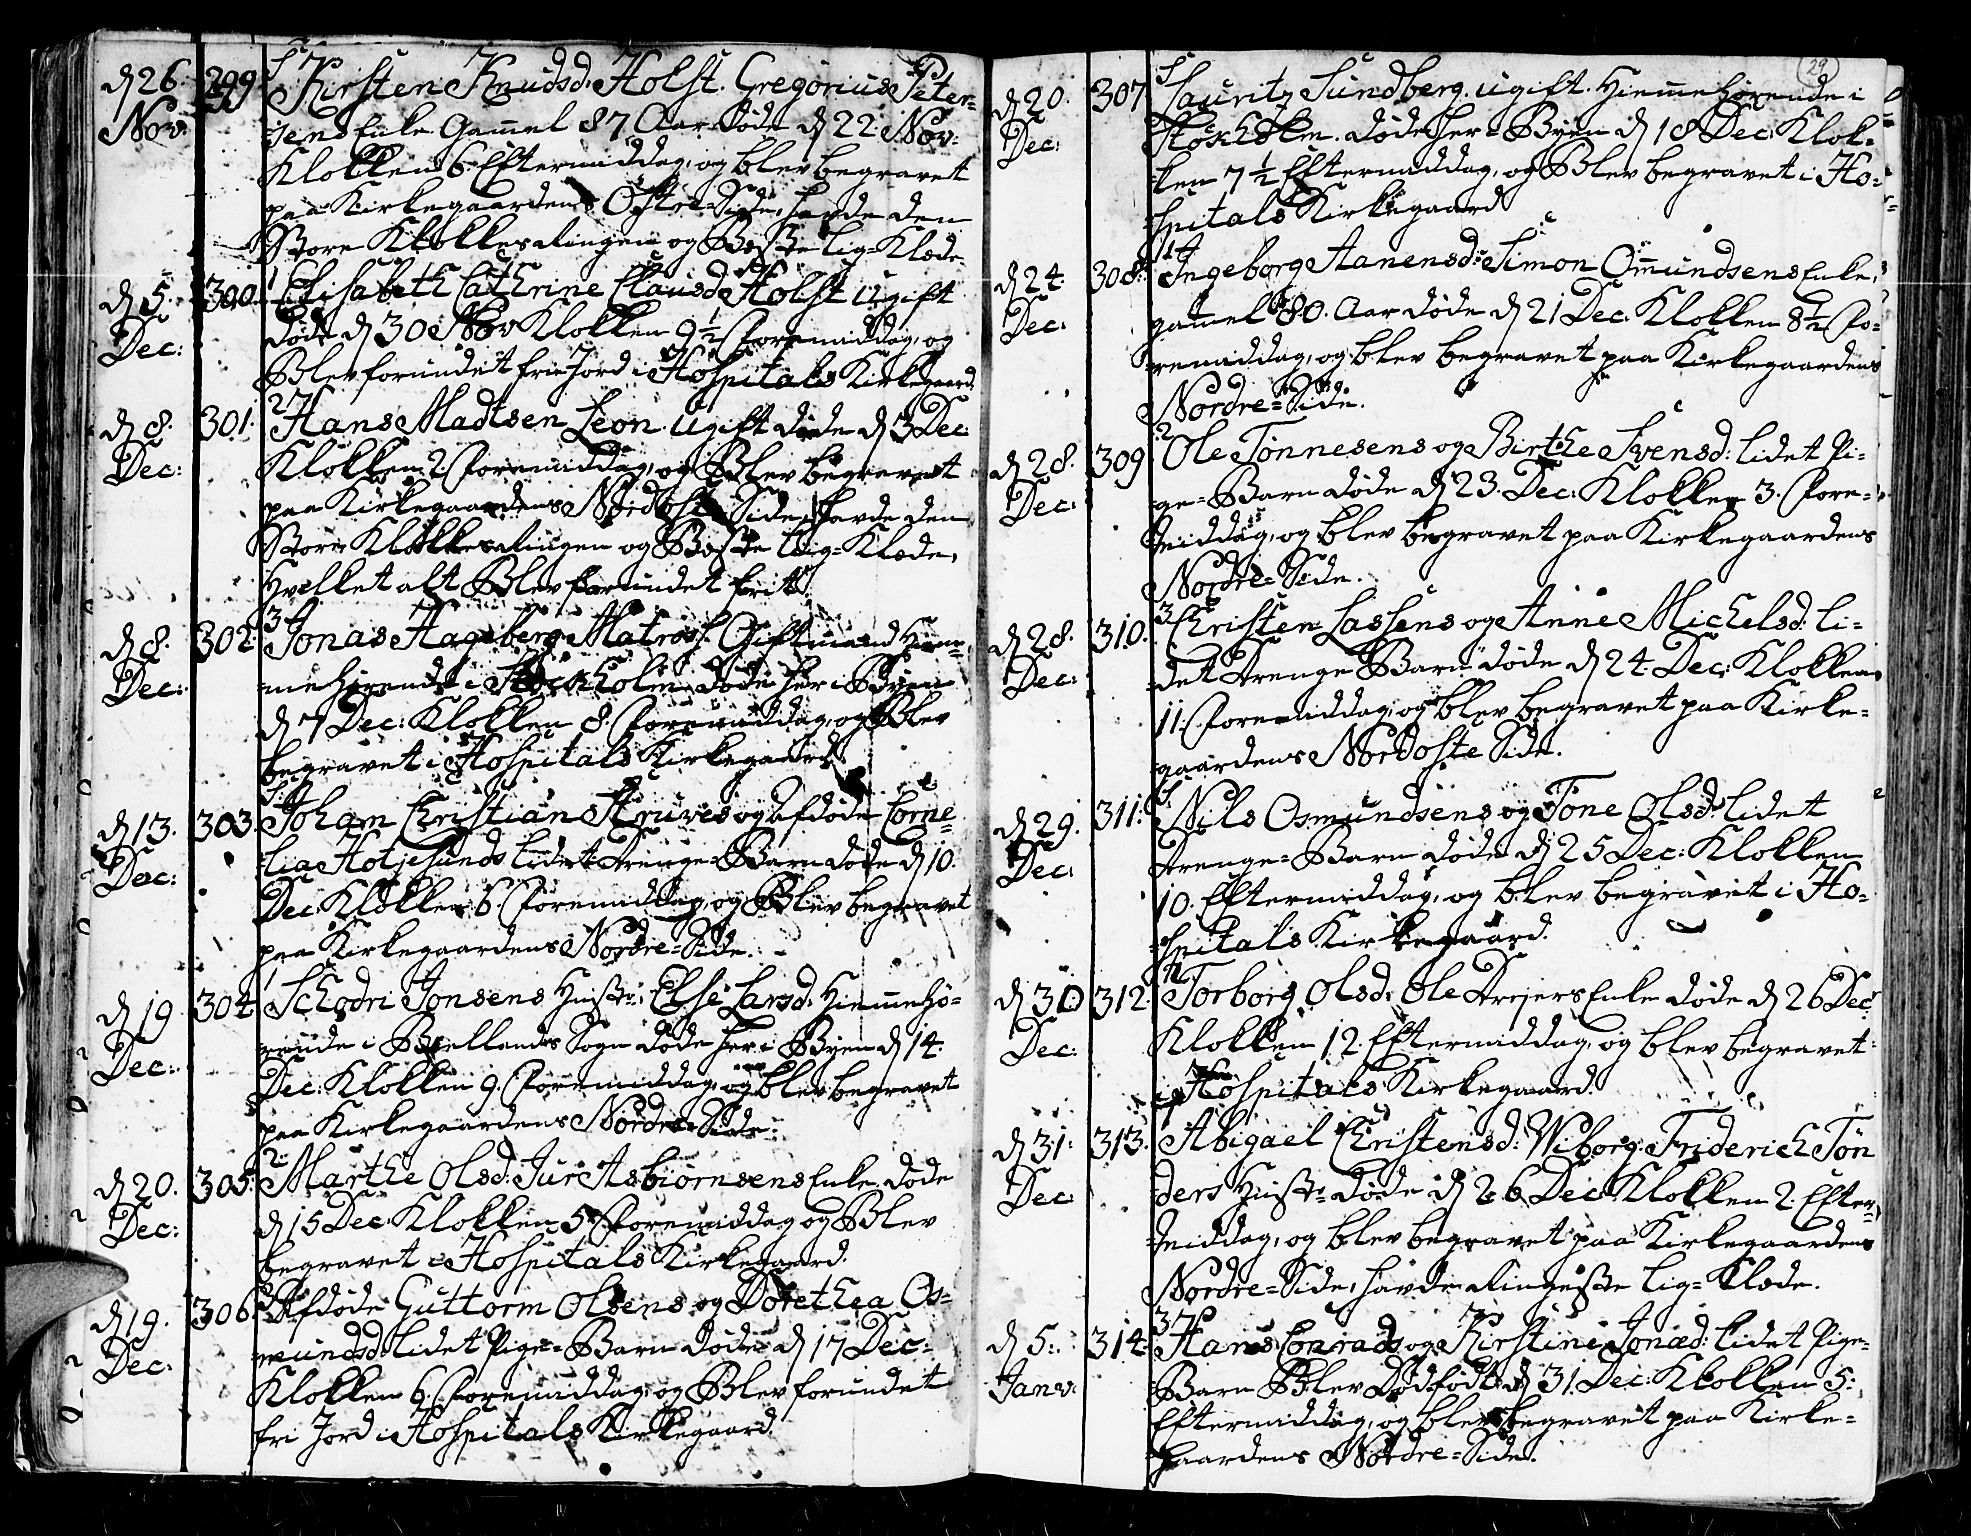 d 26. 299. Kirsten Knudsd: Holst. Gregorius Peter-
Nov: sens Enke Gammel 87 Aar døde d 22 Nov:
Klokken 6. Eftermiddag, og blev begravet
paa Kirkegaardens Østre-Side, havde den
Store Klokkes Ringen og Beste Lig-Klæde.
d 5. 300. Elisabeth Cathrine Clausd: Holst ugift
Dec: døde d 30 Nov Klokken 9½ Formiddag, og
Blev forundet fri Jord i Hospitals Kirkegaard.
d 8. 301. Hans Madtsen Leon. ugift døde d 3 Dec
Dec: Klokken 2. Formiddag, og Blev begravet
paa Kirkegaardens Nordoste Side, havde den
Store Klokkes Ringen og Beste Lig-Klæde,
Hvilket alt Blev forundet frit.
d 8. 302. Jonas Hageberg Matros. Giftmand Hiem-
Dec: mehørende i Stockholm døde her i Byen
d 7 Dec: Klokken 8. Formiddag, og Blev
begravet i Hospitals Kirkegaard.
d 13. 303. Johan Christian Struves og Afdøde Corne-
Dec: lia Hotjesunds lidet Drenge-Barn døde d 10.
Dec. Klokken 6. Formiddag, og Blev begravet
paa Kirkegaardens Nordre-Side.
d 19 304. Schodri Jonsens Hustr: Else Larsd: Hiemmehø-
Dec: rende i Biellands Sogn døde her i Byen d 14.
Dec: Klokken 9. Formiddag, og blev begravet
paa Kirkegaardens Nordre-Side.
d 20. 305. Marthe Olsd: Jur Asbiornsens Enke. døde
Dec: d 15 Dec: Klokken 5 Formiddag og Blev
begravet i Hospitals Kirkegaard.
d 19. 306. Afdøde Guttorm Olsens og Dorethea Os-
Dec: mundsd: lidet Pige-Barn døde d 17 Dec-
Klokken 6. Formiddag, og Blev forundet
fri Jord i Hospitals Kirkegaard.
29
d 20. 307 Lauritz Sundberg. ugift. Hiemmehørende i
Dec: Stokholm. døde her i Byen d 18 Dec: Klok-
ken 7½ Eftermiddag, og Blev begravet i Ho-
spitals Kirkegaard
d 24. 308. Ingeborg Aanensd: Simon Omundsens Enke,
Dec: gammel 80. Aar døde d 21 Dec: Klokken 8½ Fo-
remiddag, og blev begravet paa Kirkegaardens
Nordre-Side.
d 28. 309. Ole Tønnesens og Birthe Svensd: lidet Pi-
Dec: ge-Barn døde d 23. Dec: Klokken 3. Fore-
middag, og blev begravet paa Kirkegaardens
Nordre-Side.
d 28. 310. Christen Lassens og Anne Michelsd: li-
Dec: det Drenge Barn døde d 24. Dec: Klokken
11. Formiddag, og blev begravet paa Kirke-
gaardens Nordoste Side.
d 29. 311: Nils Osmundsens og Tone Olsd: lidet
Dec: Drenge-Barn døde d 25 Dec: Klokken
10. Eftermiddag, og blev begravet i Ho-
spitals Kirkegaard.
d 30 312. Torborg Olsd: Ole Drejers Enke døde d 26 Dec
Dec: Klokken 12. Eftermiddag, og blev begravet
i Hospitals Kirkegaard.
d 31: 313. Abigael Christensd: Wiborg. Friderich Tøn
Dec: ders Hustr: døde d 26 Dec: Klokken 2. Efter-
middag, og blev begravet paa Kirkegaardens
Nordre-Side, havde Ringeste Lig-Klæde.
d 5. 314. Hans Conrads og Kirstine Jonæd: lidet Pige-
Janv: Barn Blev Dødfødt d 31. Dec: Klokken 5:
Eftermiddag, og blev begravet paa Kirke-
gaardens Nordre-Side.